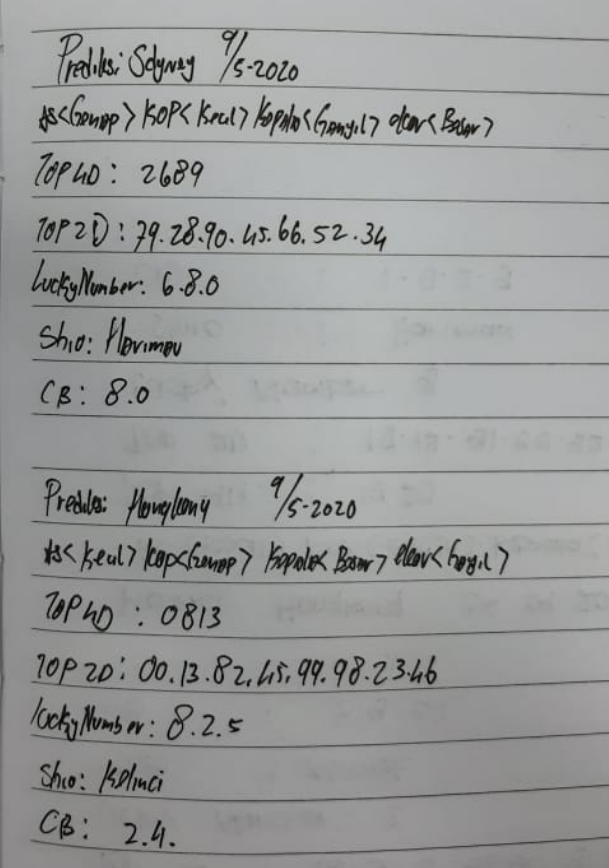 Prediksi Sdyney 9/5-2020
As<Genap> KOP<Kecil> Kepala<Ganjil> ekor<Besar>
TOP 4D : 2689
TOP 2D : 79.28.90.45.66.52.34
Lucky Number: 6.8.0
Shio: Harimau
CB : 8.0
Prediksi Hongkong 9/5-2020
As<Kecil> Kop<Genap> Kepala<Besar> ekor<Ganjil>
TOP 4D : 0813
TOP 2D : 00.13.82.45.99.98.23.46
lucky Number : 8.2.5
Shio: Kelinci
CB : 2.4.